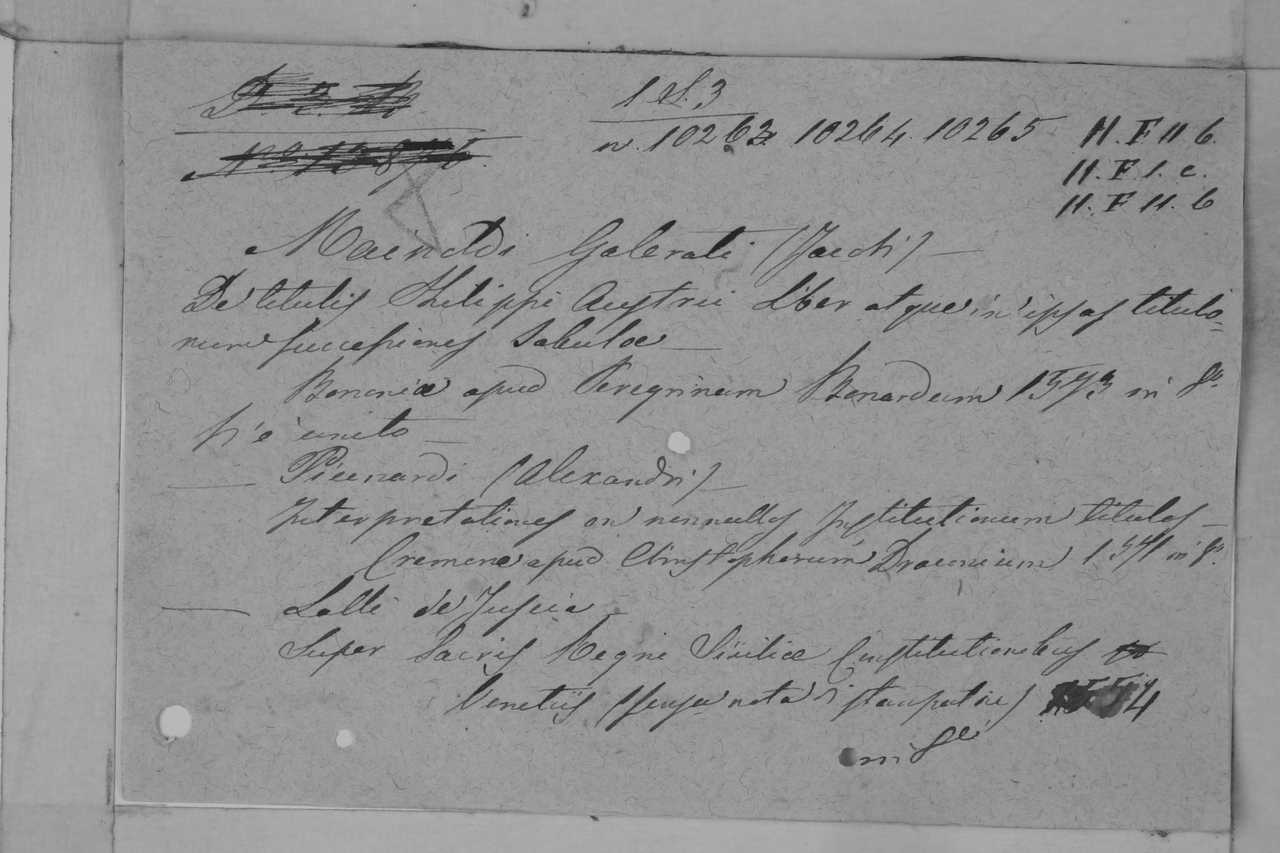 1 S. 3
n. 10263 10264 10265 H. F. II 6.
H. F. 1. c.
H. F. II. 6
Mainoldi Galerati (Jacobi) —
De titulis Philippi Austrii Liber atque in ipsas titulo-
rum successiones tabulae —
Bononiæ apud Peregrinum Bonardum 1573 in 8º
Vi è unito —
— Picenardi (Alexandri) —
Interpretationes in nonnullos Institutionum titulos —
Cremonæ apud Christophorum Draconium 1571 in 8º.
— Lalli de Tuscia
Super Sacris Regni Siciliæ Constitutionibus
Venetiis (senza nota di stampatore) 1554
in 8º